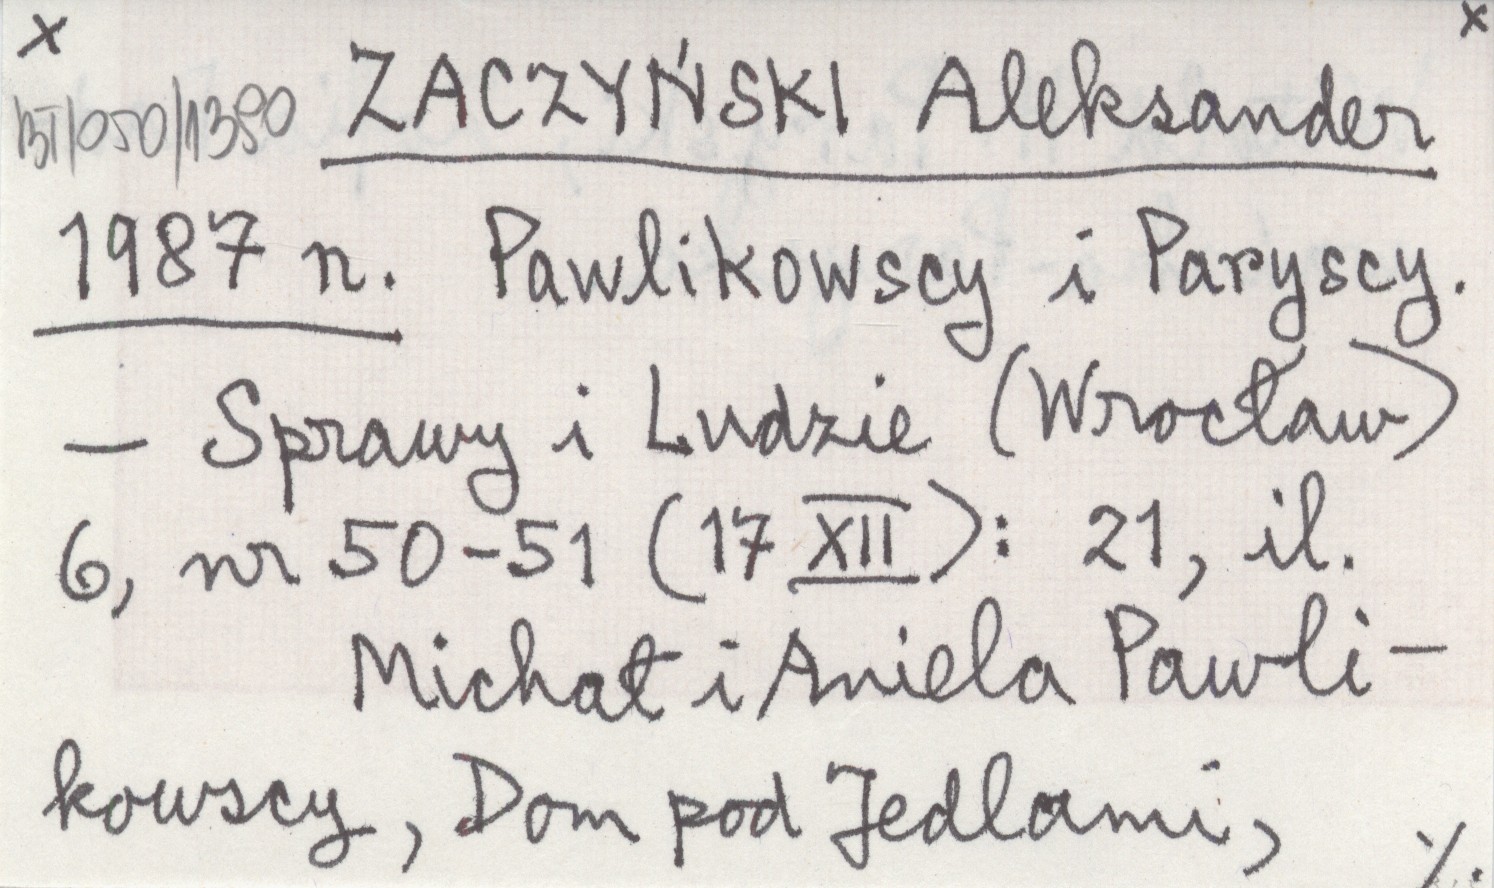 x x
BT/050/1380 ZACZYŃSKI Aleksander
1987 r. Pawlikowscy i Paryscy.
– Sprawy i Ludzie (Wrocław)
6, nr 50-51 (17 XII): 21, il.
Michał i Aniela Pawli-
kowscy, Dom pod Jedlami, ./.